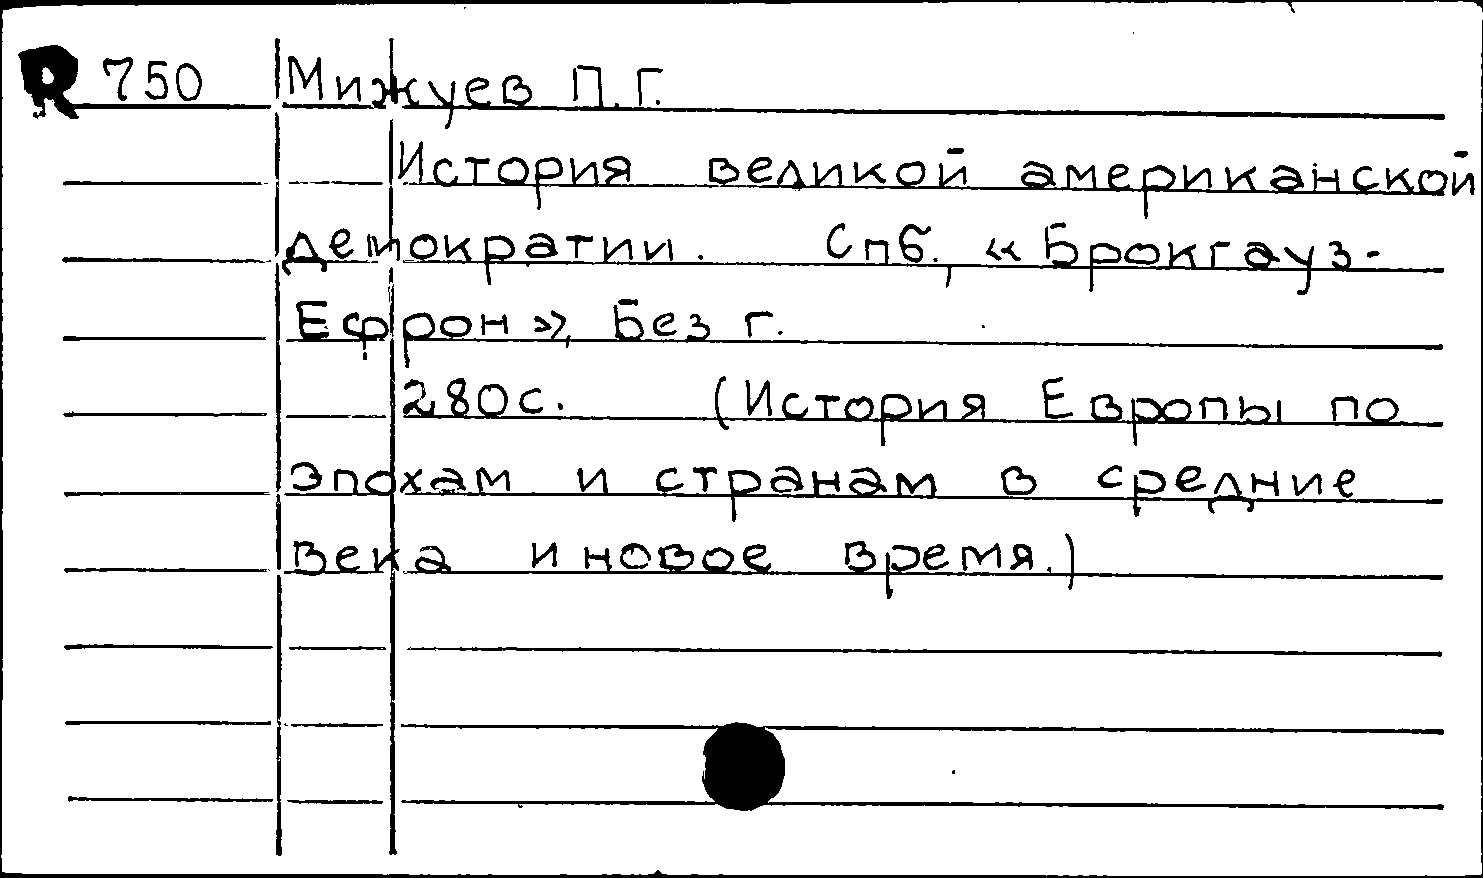 R 750 Мижуев П.Г.
История великой американской
демократии. Спб., «Брокгауз-
Ефрон», Без г.
280с. (История Европы по
эпохам и странам в средние
века и новое время.)